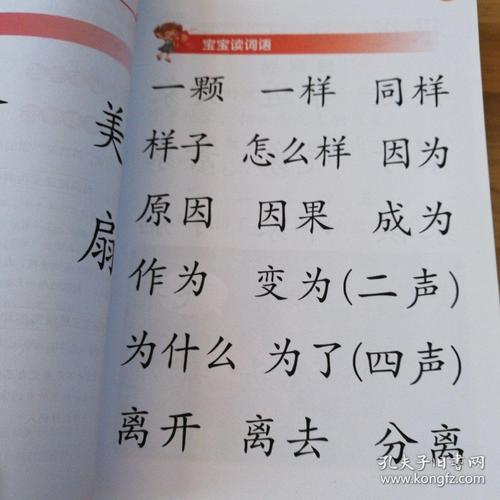 宝宝读词语
一颗 一样 同样
样子 怎么样 因为
原因 因果 成为
作为 变为(二声)
为什么 为了(四声)
离开 离去 分离
美
扇
孔夫子旧书网
kongfz.com